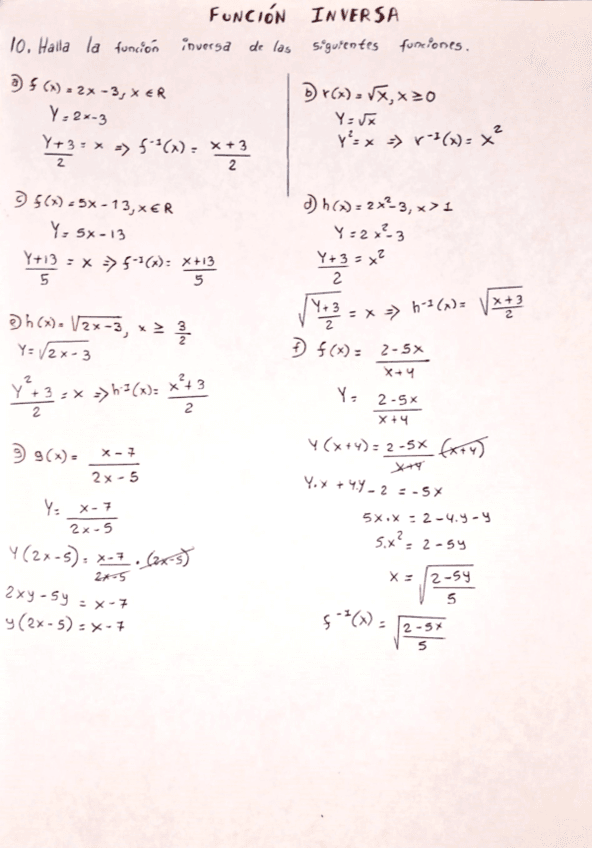 FUNCIÓN INVERSA
10. Halla la función inversa de las siguientes funciones.
a) f(x) = 2x - 3, x ∈ R
Y = 2x - 3
(Y + 3)/2 = x => f⁻¹(x) = (x + 3)/2
b) r(x) = √x, x ≥ 0
Y = √x
Y² = x => r⁻¹(x) = x²
c) f(x) = 5x - 13, x ∈ R
Y = 5x - 13
(Y + 13)/5 = x => f⁻¹(x) = (x + 13)/5
d) h(x) = 2x² - 3, x > 1
Y = 2x² - 3
(Y + 3)/2 = x²
√((Y + 3)/2) = x => h⁻¹(x) = √((x + 3)/2)
e) h(x) = √(2x - 3), x ≥ 3/2
Y = √(2x - 3)
(Y² + 3)/2 = x => h⁻¹(x) = (x² + 3)/2
f) f(x) = (2 - 5x)/(x + 4)
Y = (2 - 5x)/(x + 4)
Y(x + 4) = (2 - 5x)/(x + 4) (x + 4)
Y.x + 4.y - 2 = -5x
5x.x = 2 - 4.y - y
5.x² = 2 - 5y
x = √((2 - 5y)/5)
f⁻¹(x) = √((2 - 5x)/5)
g) g(x) = (x - 7)/(2x - 5)
Y = (x - 7)/(2x - 5)
Y(2x - 5) = (x - 7)/(2x - 5) . (2x - 5)
2xy - 5y = x - 7
y(2x - 5) = x - 7